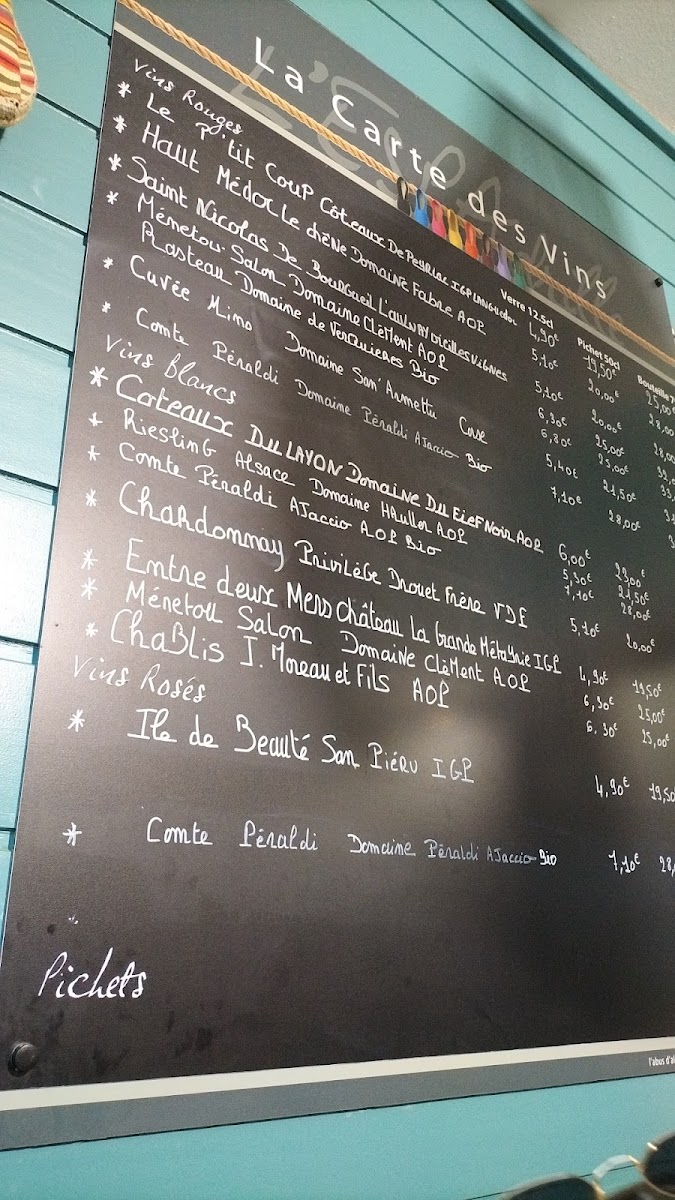 La Carte des Vins
Verre 12.5cl Pichet 50cl Bouteille 7
Vins Rouges
* Le P'tit Coup Côteaux De Peyriac IGP Languedoc 4,90€ 19,50€ 25,00€
* Haut Médoc Le chêne Domaine Fabre AOP 5,10€ 20,00€ 28,00
* Saint Nicolas De Bourgueil L'aulnay Vieilles Vignes 5,10€ 20,00€ 28,00
* Ménetou-Salon Domaine Clément AOP 6,30€ 25,00€ 32,0
Rasteau Domaine de Verquieres Bio 6,80€ 25,00€ 33,
* Cuvée Mino Domaine San' Armettu Corse 5,40€ 21,50€ 31
* Comte Péraldi Domaine Péraldi AJaccio Bio 7,10€ 28,00€ 3
Vins blancs
* Coteaux Du LAYON Domaine Du Fief Noir AOP 6,00€ 23,00€
* Riesling Alsace Domaine Haullon AOP 5,30€ 21,50€
* Comte Péraldi AJaccio AOP Bio 7,10€ 28,00€
* Chardonnay Privilége Drouet Frère VDF 5,10€ 20,00€
* Entre deux Mers château la Grande Métaynie IGP 4,90€ 19,50€
* Ménetou Salon Domaine Clément AOP 6,30€ 25,00€
* Chablis J. Moreau et Fils AOP 6.30€ 25,00€
Vins Rosés
* Ile de Beauté San Piéru IGP 4,90€ 19,50
* Comte Péraldi Domaine Péraldi AJaccio Bio 7,10€ 28,
Pichets
l'abus d'al